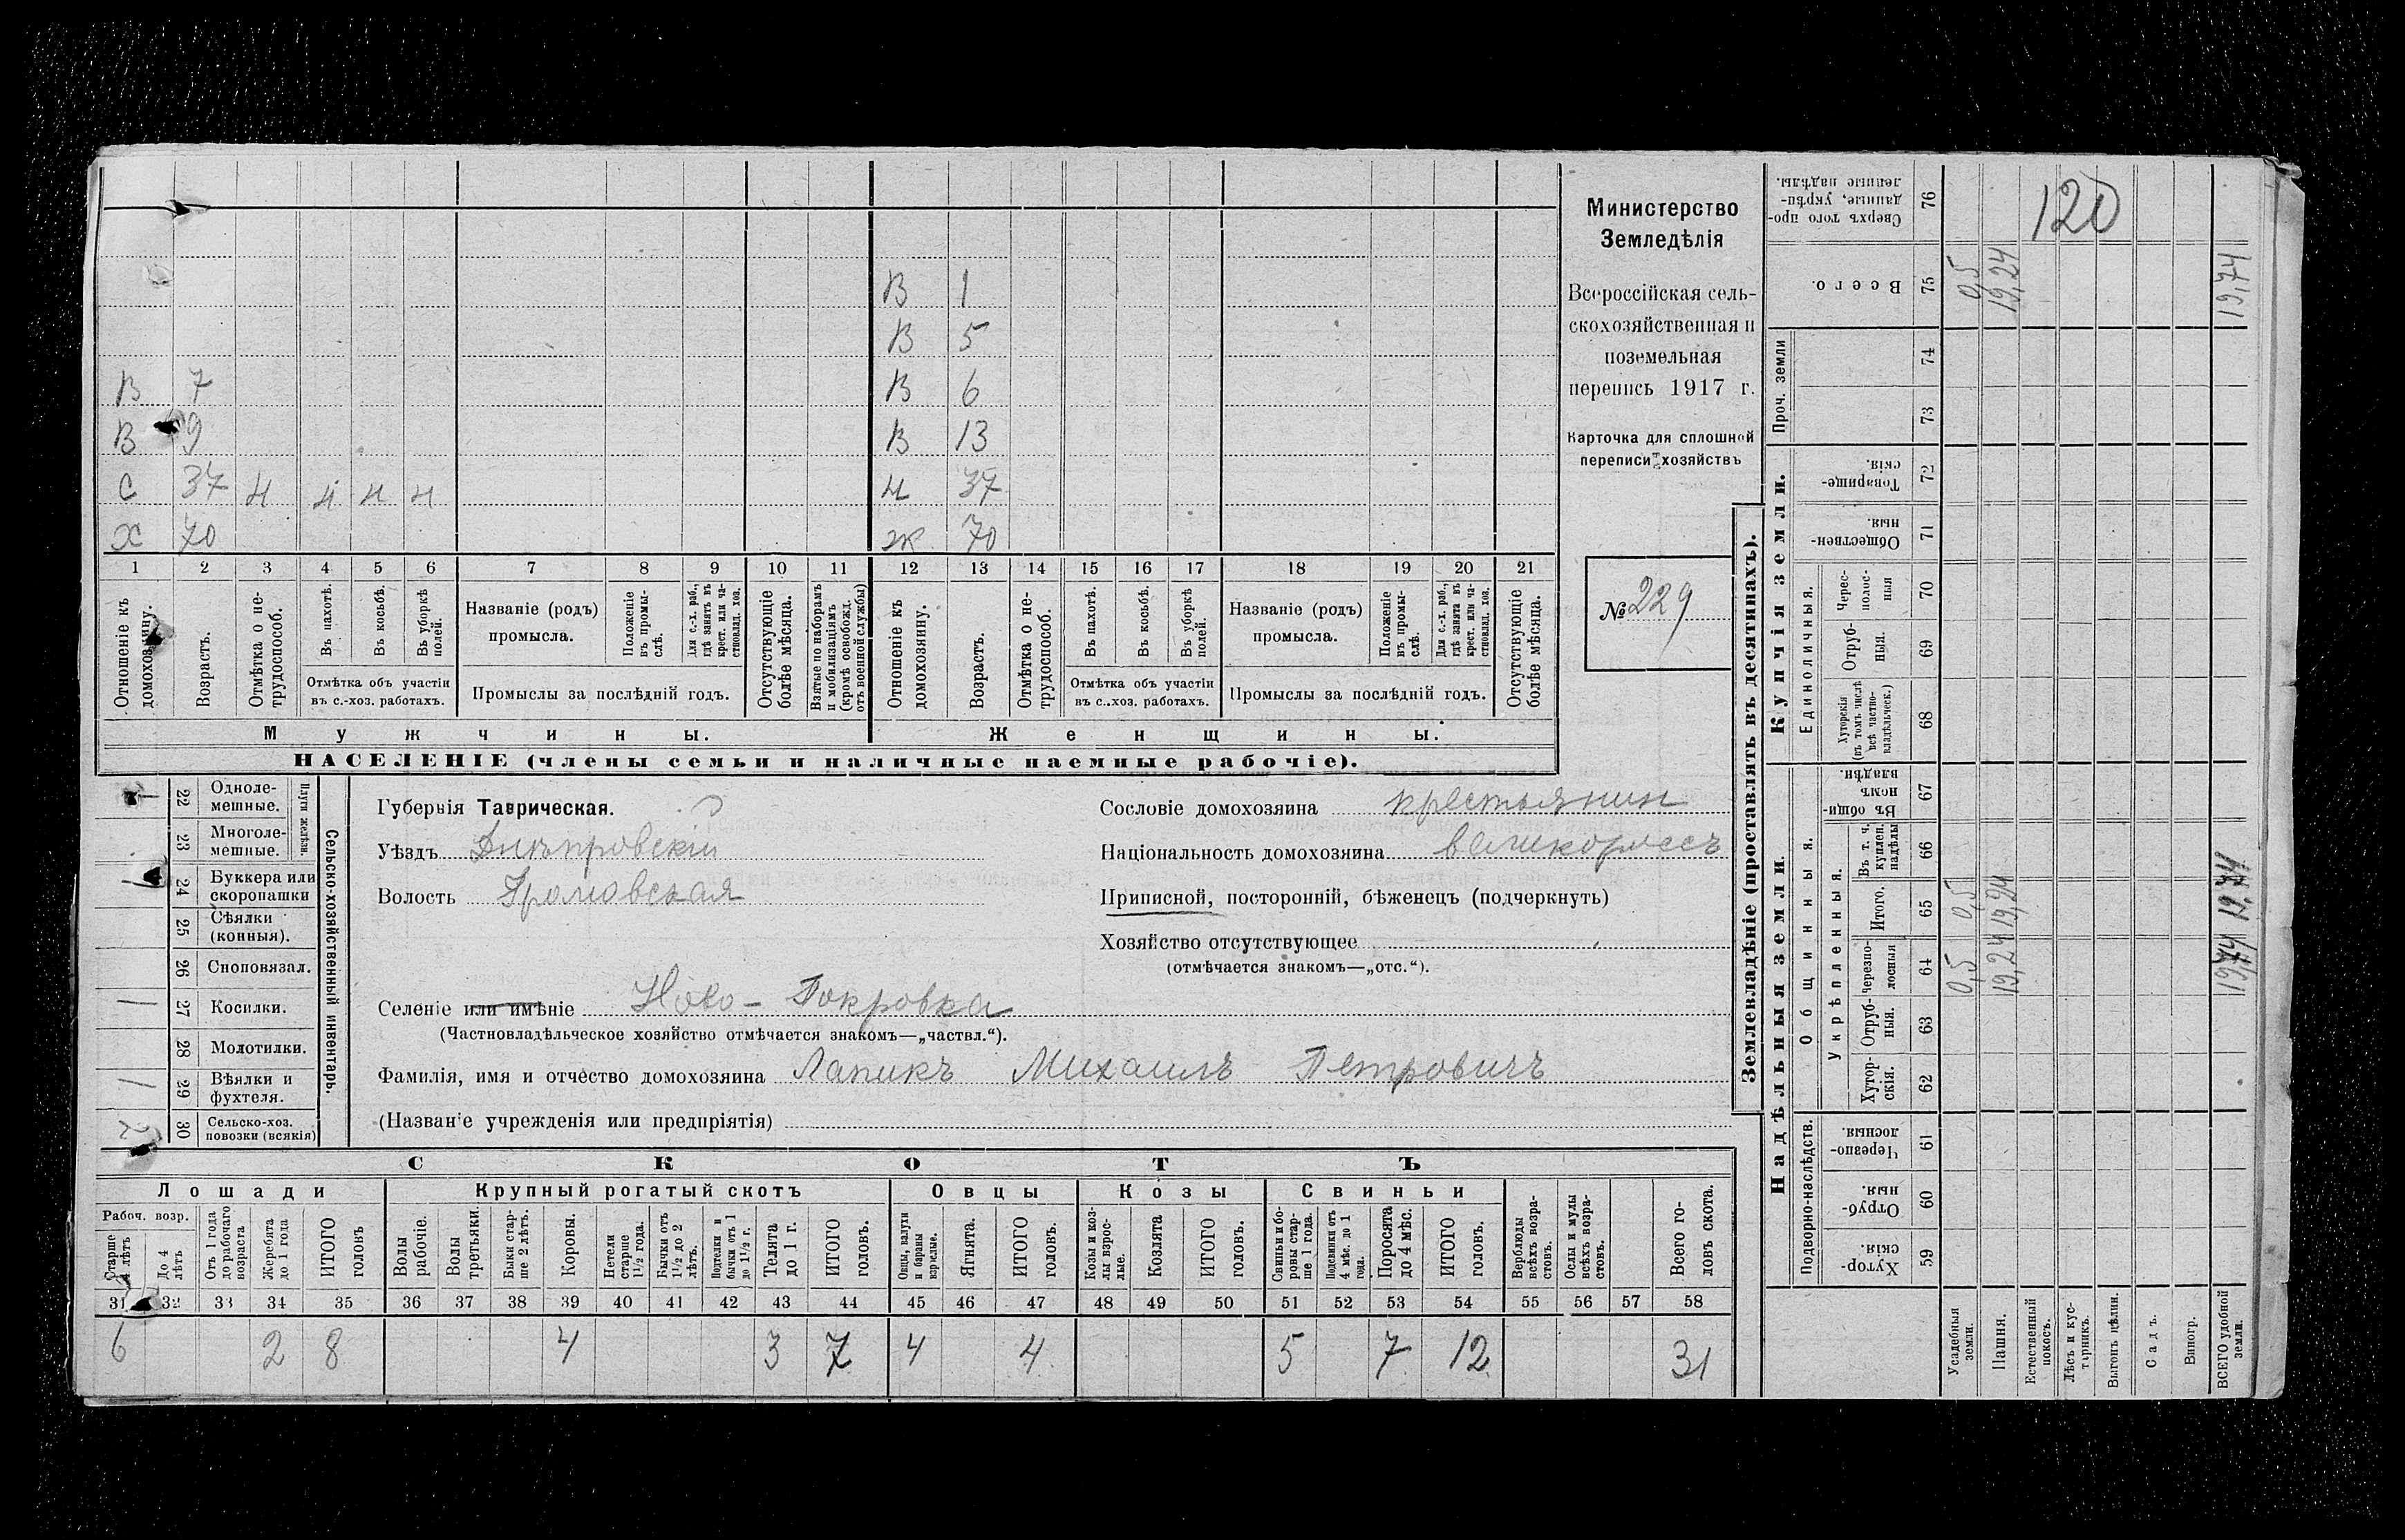 120
Министерство
Земледѣлія
Всероссійская сель-
скохозяйственная и
поземельная
перепись 1917 г.
Карточка для сплошной
переписи хозяйствъ
№ 229
В 1
В 5
В 7 В 6
В 9 В 13
С 37 н н н н н 37
Х 70 ж 70
1 2 3 4 5 6 7 8 9 10 11 12 13 14 15 16 17 18 19 20 21
Отношеніе къ домохозяину.
Возрастъ.
Отмѣтка о не-трудоспособ.
Въ пахотѣ.
Въ косьбѣ.
Въ уборкѣ полей.
Отмѣтка объ участіи
въ с.-хоз. работахъ.
Названіе (родъ)
промысла.
Положеніе въ промы-слѣ.
Для с.-х. раб., гдѣ занятъ въ крест. или ча-стновлад. хоз.
Промыслы за послѣдній годъ.
Отсутствующіе болѣе мѣсяца.
Взятые по наборамъ и мобилизаціямъ (кромѣ освобожд. отъ военной службы)
Отношеніе къ домохозяину.
Возрастъ.
Отмѣтка о не-трудоспособ.
Въ пахотѣ.
Въ косьбѣ.
Въ уборкѣ полей.
Отмѣтка объ участіи
въ с.-хоз. работахъ.
Названіе (родъ)
промысла.
Положеніе въ промы-слѣ.
Для с.-х. раб., гдѣ занята въ крест. или ча-стновлад. хоз.
Промыслы за послѣдній годъ.
Отсутствующіе болѣе мѣсяца.
Мужчины. Женщины.
НАСЕЛЕНІЕ (члены семьи и наличные наемные рабочіе).
Сельско-хозяйственный инвентарь.
Плуги желѣзн.
22 Одноле-мешные.
23 Многоле-мешные.
24 Буккера или скоропашки
25 Сѣялки (конныя).
26 Сноповязал.
27 Косилки.
28 Молотилки.
29 Вѣялки и фухтеля.
30 Сельско-хоз. повозки (всякія)
1
1
1
1
2
Губернія Таврическая.
Уѣздъ Днѣпровскій
Волость Громовская
Селеніе или имѣніе Ново-Покровка
(Частновладѣльческое хозяйство отмѣчается знакомъ—„частвл.“).
Фамилія, имя и отчество домохозяина Лапикъ Михаилъ Петровичъ
(Названіе учрежденія или предпріятія)
Сословіе домохозяина крестьянин
Національность домохозяина великороссъ
Приписной, посторонній, бѣженецъ (подчеркнуть)
Хозяйство отсутствующее
(отмѣчается знакомъ—„отс.“).
СКОТЪ
Лошади Крупный рогатый скотъ Овцы Козы Свиньи
Рабоч. возр.
Старше 4 лѣтъ
До 4 лѣтъ
Отъ 1 года до рабочаго возраста
Жеребята до 1 года
ИТОГО головъ
Волы рабочіе.
Волы третьяки.
Быки стар-ше 2 лѣтъ.
Коровы.
Нетели старше 1½ года.
Бычки отъ 1½ до 2 лѣтъ.
Подтелки и бычки отъ 1 до 1½ г.
Телята до 1 г.
ИТОГО головъ.
Овцы, валухи и бараны взрослые.
Ягнята.
ИТОГО головъ.
Козы и коз-лы взрос-лые.
Козлята
ИТОГО головъ.
Свиньи и бо-ровы стар-ше 1 года.
Подсвинки отъ 4 мѣс. до 1 года.
Поросята до 4 мѣс.
ИТОГО головъ.
Верблюды всѣхъ возра-стовъ.
Ослы и мулы всѣхъ возра-стовъ.
Всего го-ловъ скота.
31 32 33 34 35 36 37 38 39 40 41 42 43 44 45 46 47 48 49 50 51 52 53 54 55 56 57 58
6 2 8 4 3 7 4 4 5 7 12 31
Землевладѣніе (проставлять въ десятинахъ).
Надѣльныя земли.
Купчія земли.
Проч. земли
Подворно-наслѣдств.
Общинныя.
Укрѣпленныя.
Единоличныя.
Хутор-скія. 59
Отруб-ныя. 60
Черезпо-лосныя. 61
Хутор-скія. 62
Отруб-ныя. 63
Черезпо-лосныя 64
Итого. 65
Въ т. ч. куплен. надѣлы 66
Въ общин-номъ владѣн. 67
Хуторскія (въ томъ числѣ всѣ частно-владѣльческ.) 68
Отруб-ныя. 69
Черес-полос-ныя 70
Обществен-ныя. 71
Товарище-скія. 72
73
74
Всего. 75
Сверхъ того про-данные, укрѣп-ленные надѣлы. 76
Усадебныя земли. 0,5 0,5 0,5
Пашня. 19,24 19,24 19,24
Естественный покосъ.
Лѣсъ и кус-тарникъ.
Выгонъ цѣлин.
Садъ.
Виногр.
ВСЕГО удобной земли. 19,74 19,74 19,74